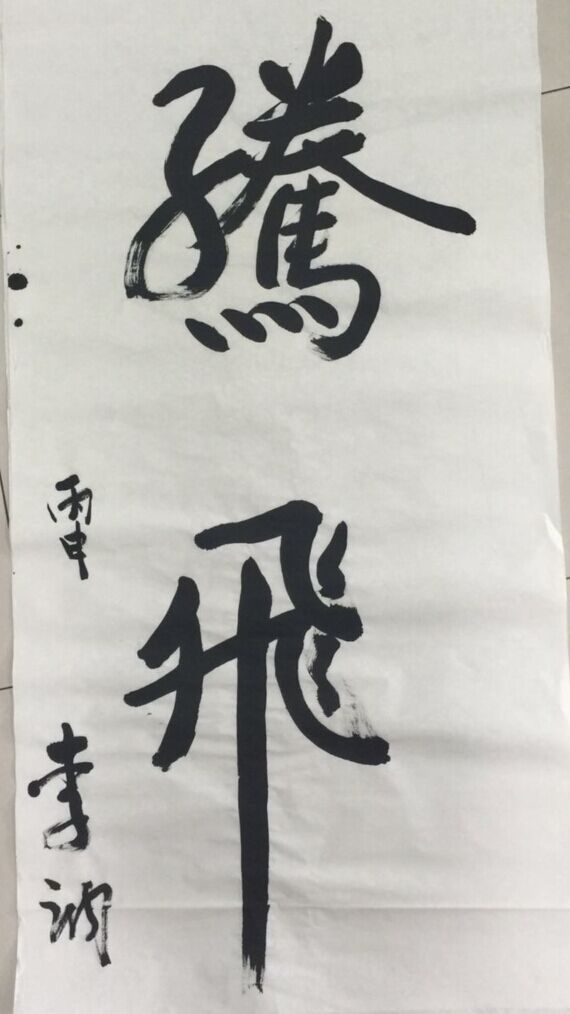 騰飛
丙申
李